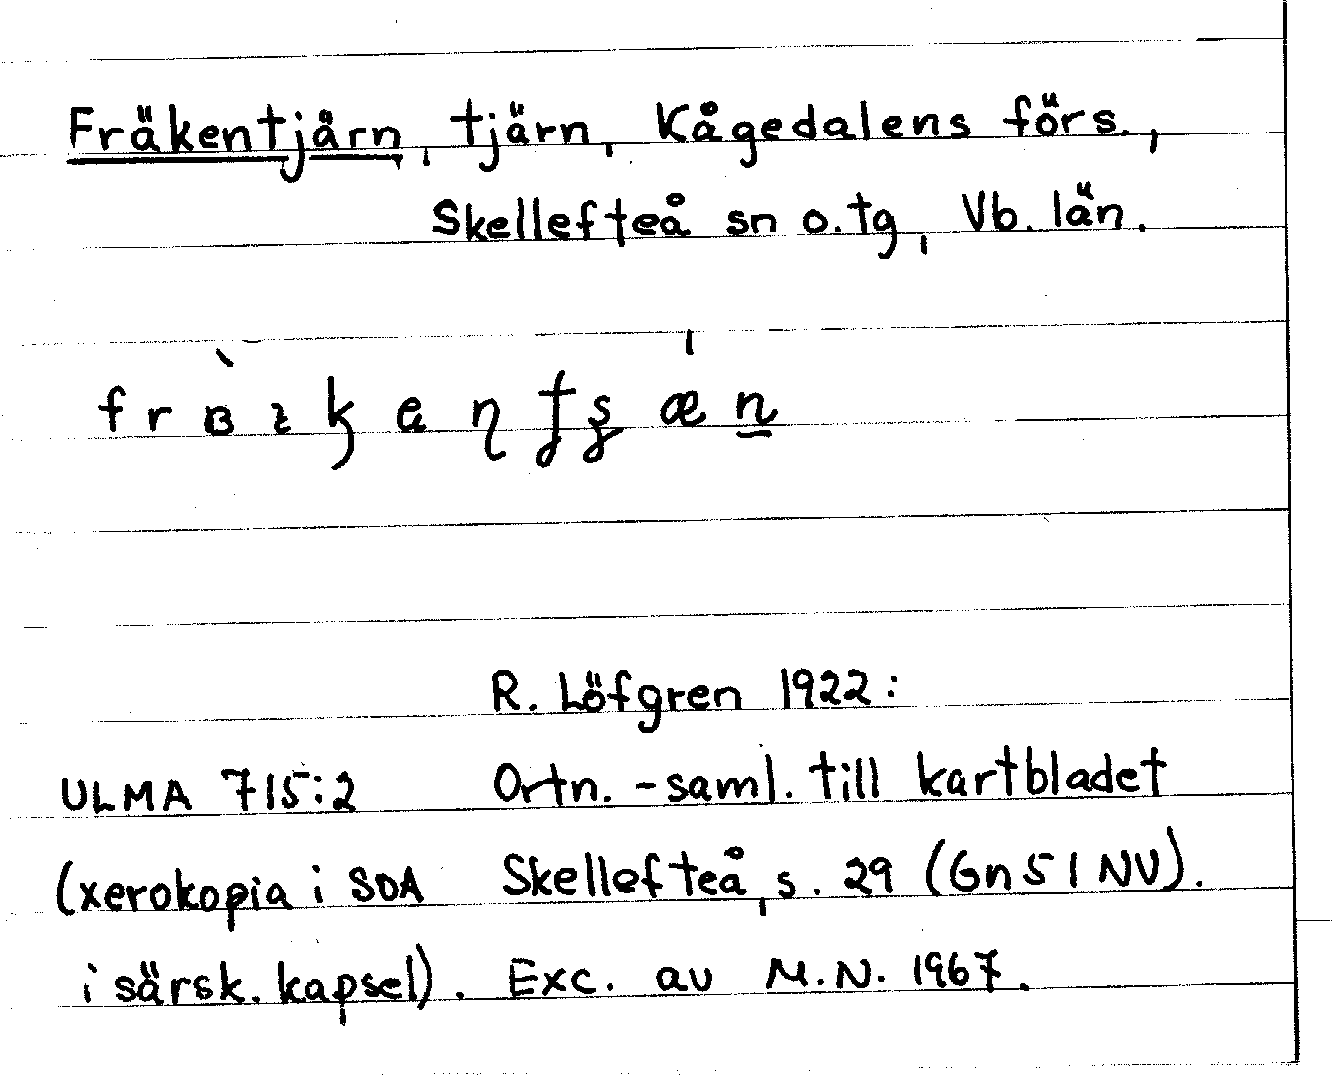 Fräkentjärn, tjärn, Kågedalens förs.,
Skellefteå sn o. tg, Vb. län.
R. Löfgren 1922:
ULMA 715:2 Ortn.-saml. till kartbladet
(xerokopia i SOA Skellefteå, s. 29 (Gn 51 NV).
i särsk. kapsel). Exc. av M.N. 1967.